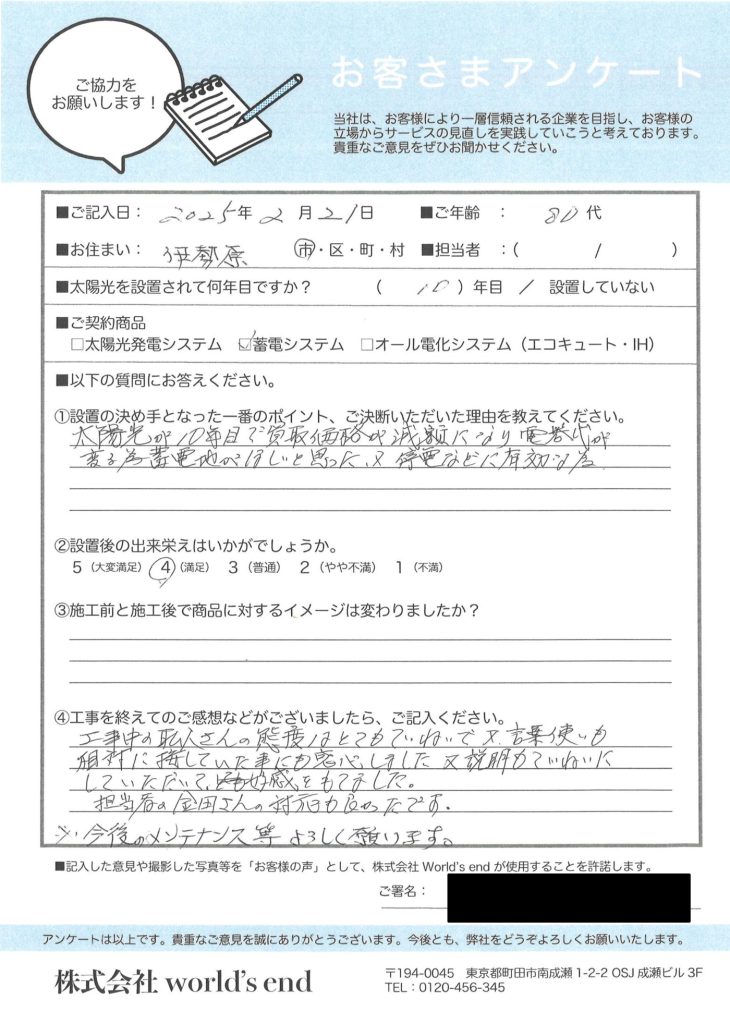 ご協力を
お願いします!
お客さまアンケート
当社は、お客様により一層信頼される企業を目指し、お客様の
立場からサービスの見直しを実践していこうと考えております。
貴重なご意見をぜひお聞かせください。
■ご記入日: 2025年 2月21日 ■ご年齢 : 80代
■お住まい: 伊勢原 市・区・町・村 ■担当者 :( / )
■太陽光を設置されて何年目ですか? ( 10 )年目 / 設置していない
■ご契約商品
□太陽光発電システム ☑蓄電システム □オール電化システム(エコキュート・IH)
■以下の質問にお答えください。
①設置の決め手となった一番のポイント、ご決断いただいた理由を教えてください。
太陽光が10年目で買取価格が減額になり電気代が
変る為蓄電池がほしいと思った、又停電などに有効な為
②設置後の出来栄えはいかがでしょうか。
5(大変満足) 4(満足) 3(普通) 2(やや不満) 1(不満)
③施工前と施工後で商品に対するイメージは変わりましたか?
④工事を終えてのご感想などがございましたら、ご記入ください。
工事中の職人さんの態度はとてもていねいで又言葉使いも
相対に接していた事にも感心しました又説明もていねいに
していただいて、好感をもてました。
担当者の金田さんの対応も良かったです。
※今後のメンテナンス等よろしく願います。
■記入した意見や撮影した写真等を「お客様の声」として、株式会社 World's end が使用することを許諾します。
ご署名:
アンケートは以上です。貴重なご意見を誠にありがとうございます。今後とも、弊社をどうぞよろしくお願いいたします。
株式会社 world's end
〒194-0045 東京都町田市南成瀬1-2-2 OSJ成瀬ビル3F
TEL:0120-456-345